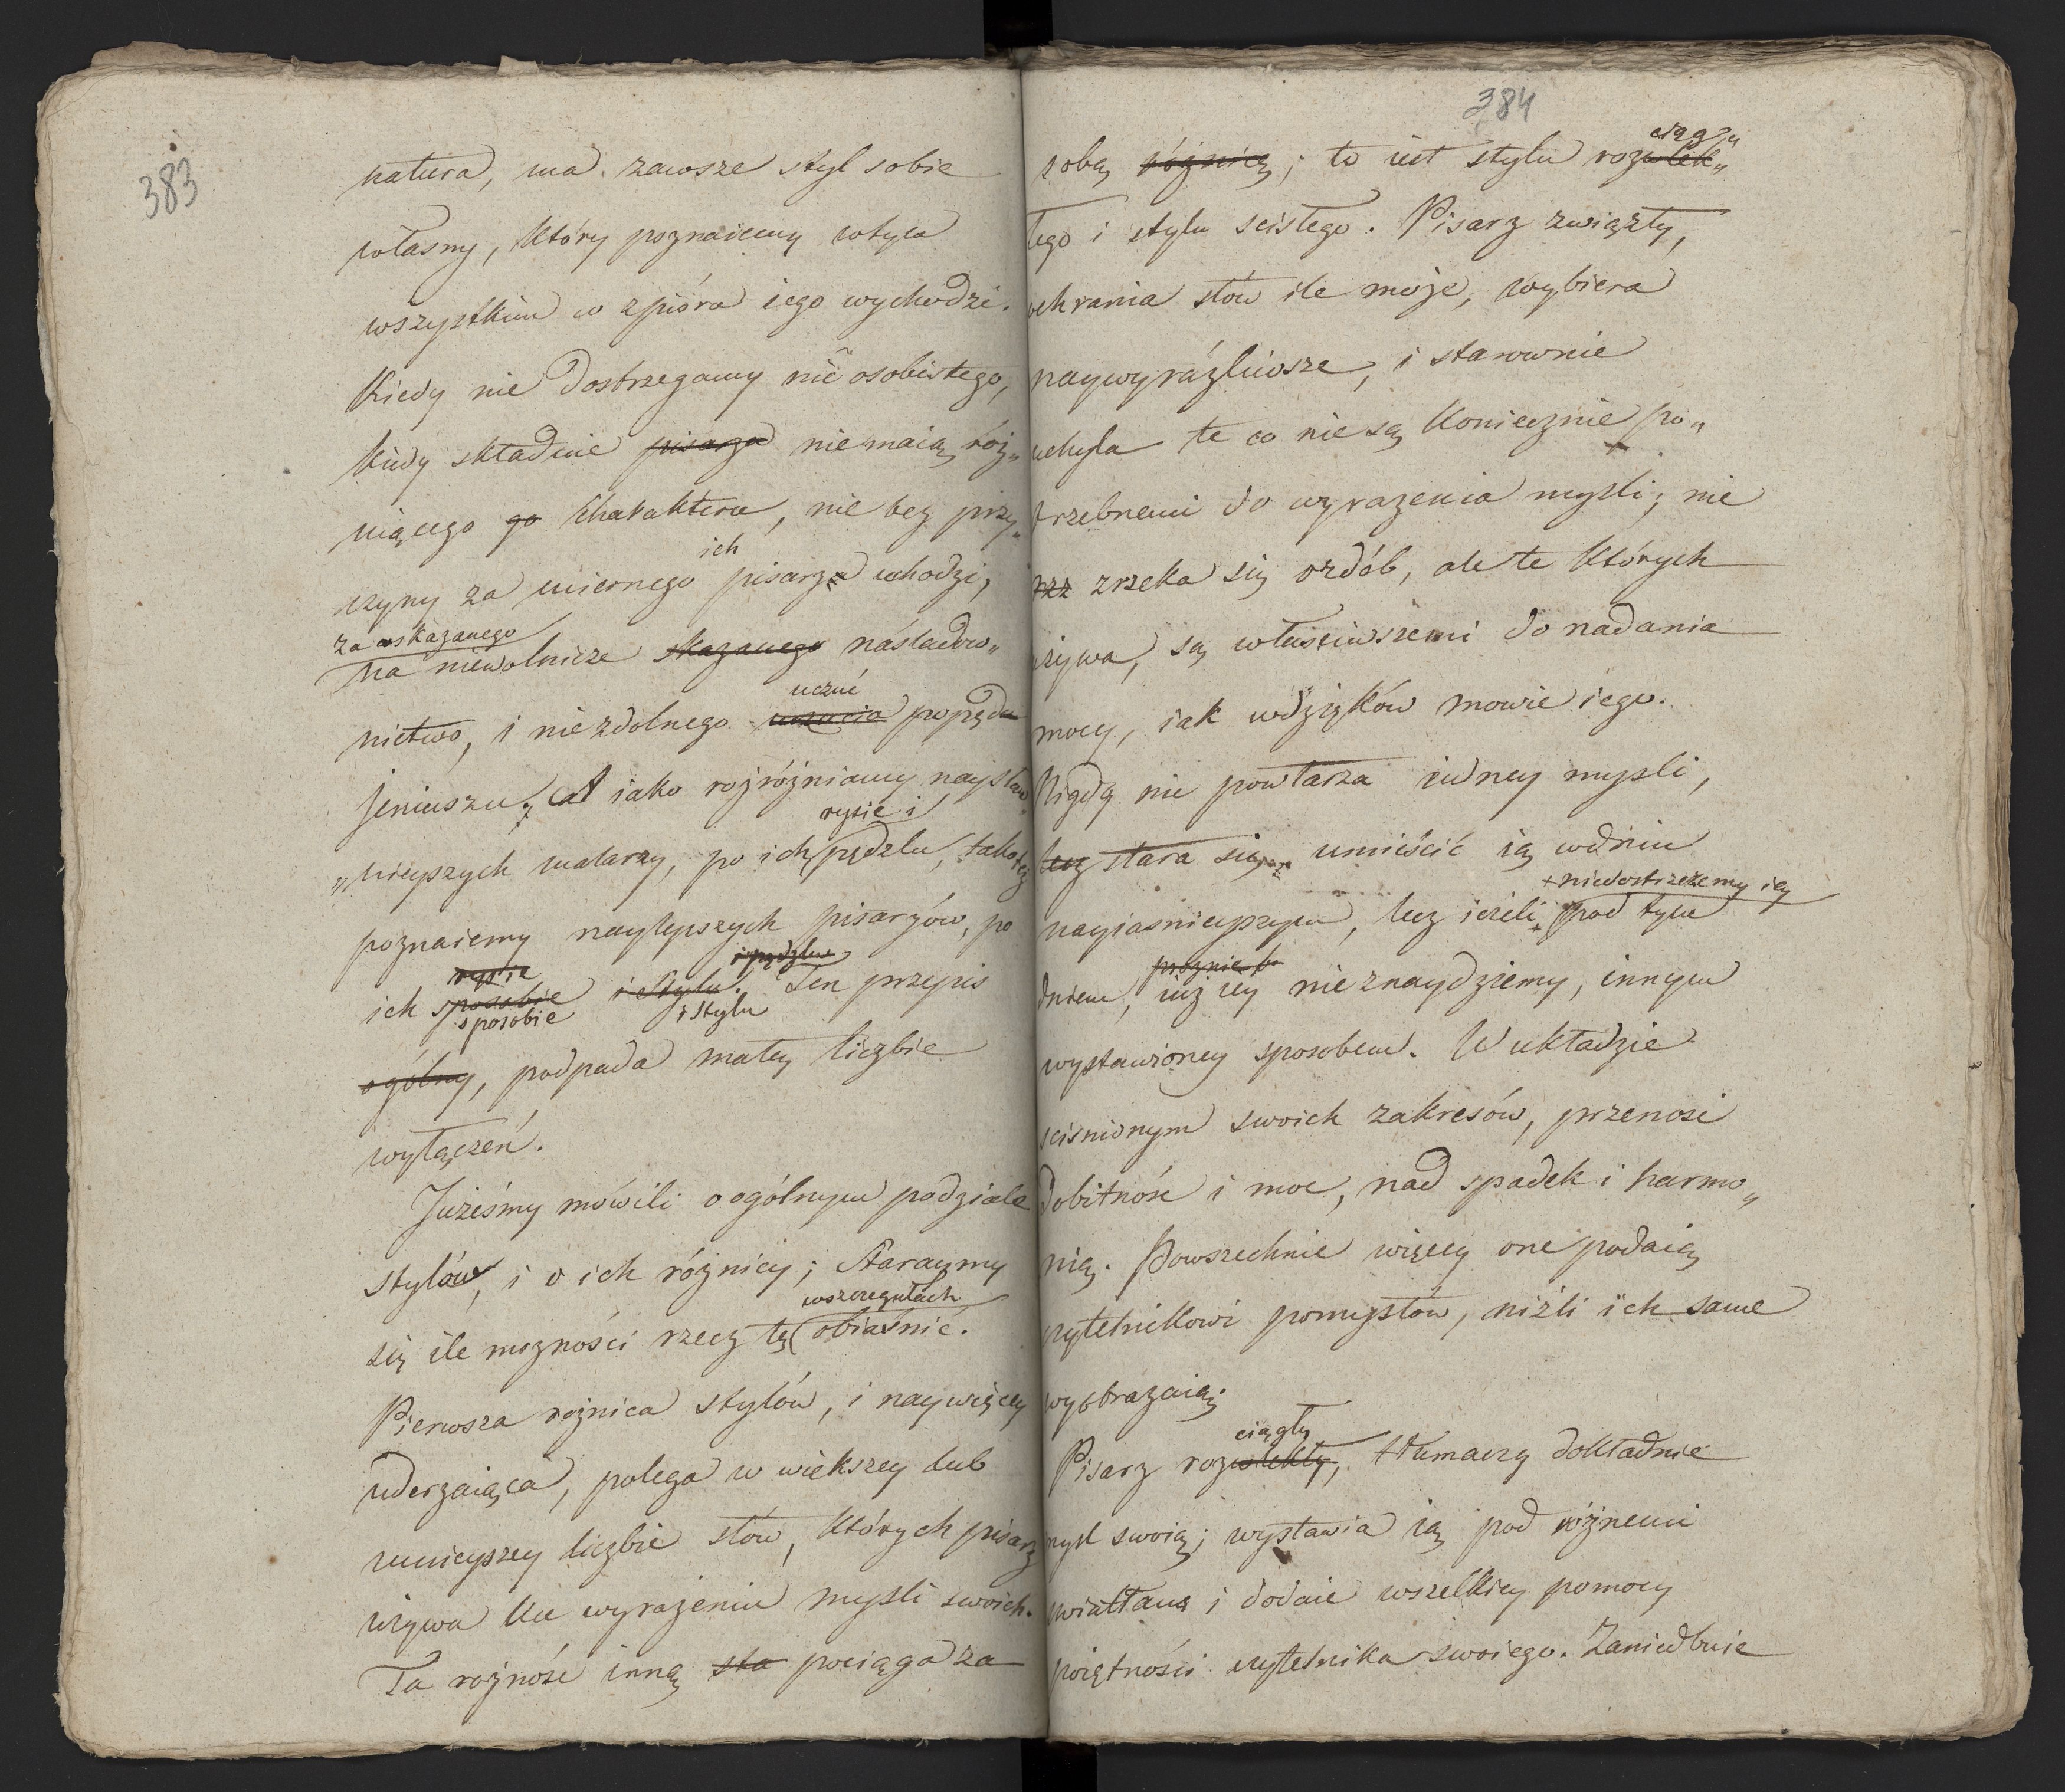 383
natura, ma zawsze styl sobie
własny, który poznaiemy wtym
wszystkim co zpióra iego wychodzi.
Kiedy nie dostrzegamy nic osobistego,
kiedy składnie pisarza nie maią róż„
niącego go charakteru, nie bez przy„
ich
czyny za miernego pisarza uchodzi,
za wskazanego
na niewolnicze skazanego naśladow„
uczuć
nictwo, i niezdolnego uczucia popędu
jeniuszu; A iako rozróżniamy naysław
rysie i
„nieyszych malarzy, po ich pędzlu, tako też
poznaiemy naylepszych pisarzów, po
rysie i pędzlu
ich sposobie i stylu. Ten przepis
sposobie i stylu
ogólny, podpada małey liczbie
wyłączeń.
Jużeśmy mówili o ogólnym podziale
stylów, i o ich różnicy; Staraymy
wszczegułach
się ile mozności rzecz tę obiaśnić.
Pierwsza roznica stylów, i naywięcey
uderzaiąca, polega w większey lub
mnieyszey liczbie słów, których pisarz
używa ku wyrażeniu mysli swoich.
Ta rożność inną sta pociąga za
384
ciąg„
sobą różnicę; to iest stylu rozwlek„
łego i stylu scisłego. Pisarz związły,
ochrania słów ile może, wybiera
naywyráźliwsze, i starownie
uchyla te co nie są koniecznie po„
trzebnemi do wyrazenia mysli; nie
rzz zrzeka się ozdób, ale te których
używa, są właściwszemi do nadania
mocy, iak wdzięków mowie iego.
Nigdy nie powtarza iedney mysli,
lecz stara się umieścić ią wdniu
+ niedostrzeżemy iey
nayiasnieyszym, lecz ieżeli pod tym
próżnie b
dniem, iuż iey nie znaydziemy, innym
wystawioney sposobem. W układzie
scisnionym swoich zakresów, przenosi
dobitność i moc, nad spadek i harmo„
nią. Powszechnie więcey one podaią
czytelnikowi pomysłów, niźli ich same
wyobrazaią;
ciągły
Pisarz rozwlekły, tłumaczy dokładnie
mysl swoią; wystawia ią pod różnemi
swiatłami i dodaie wszelkiey pomocy
poiętności czytelnika swoiego. Zaniedbuie